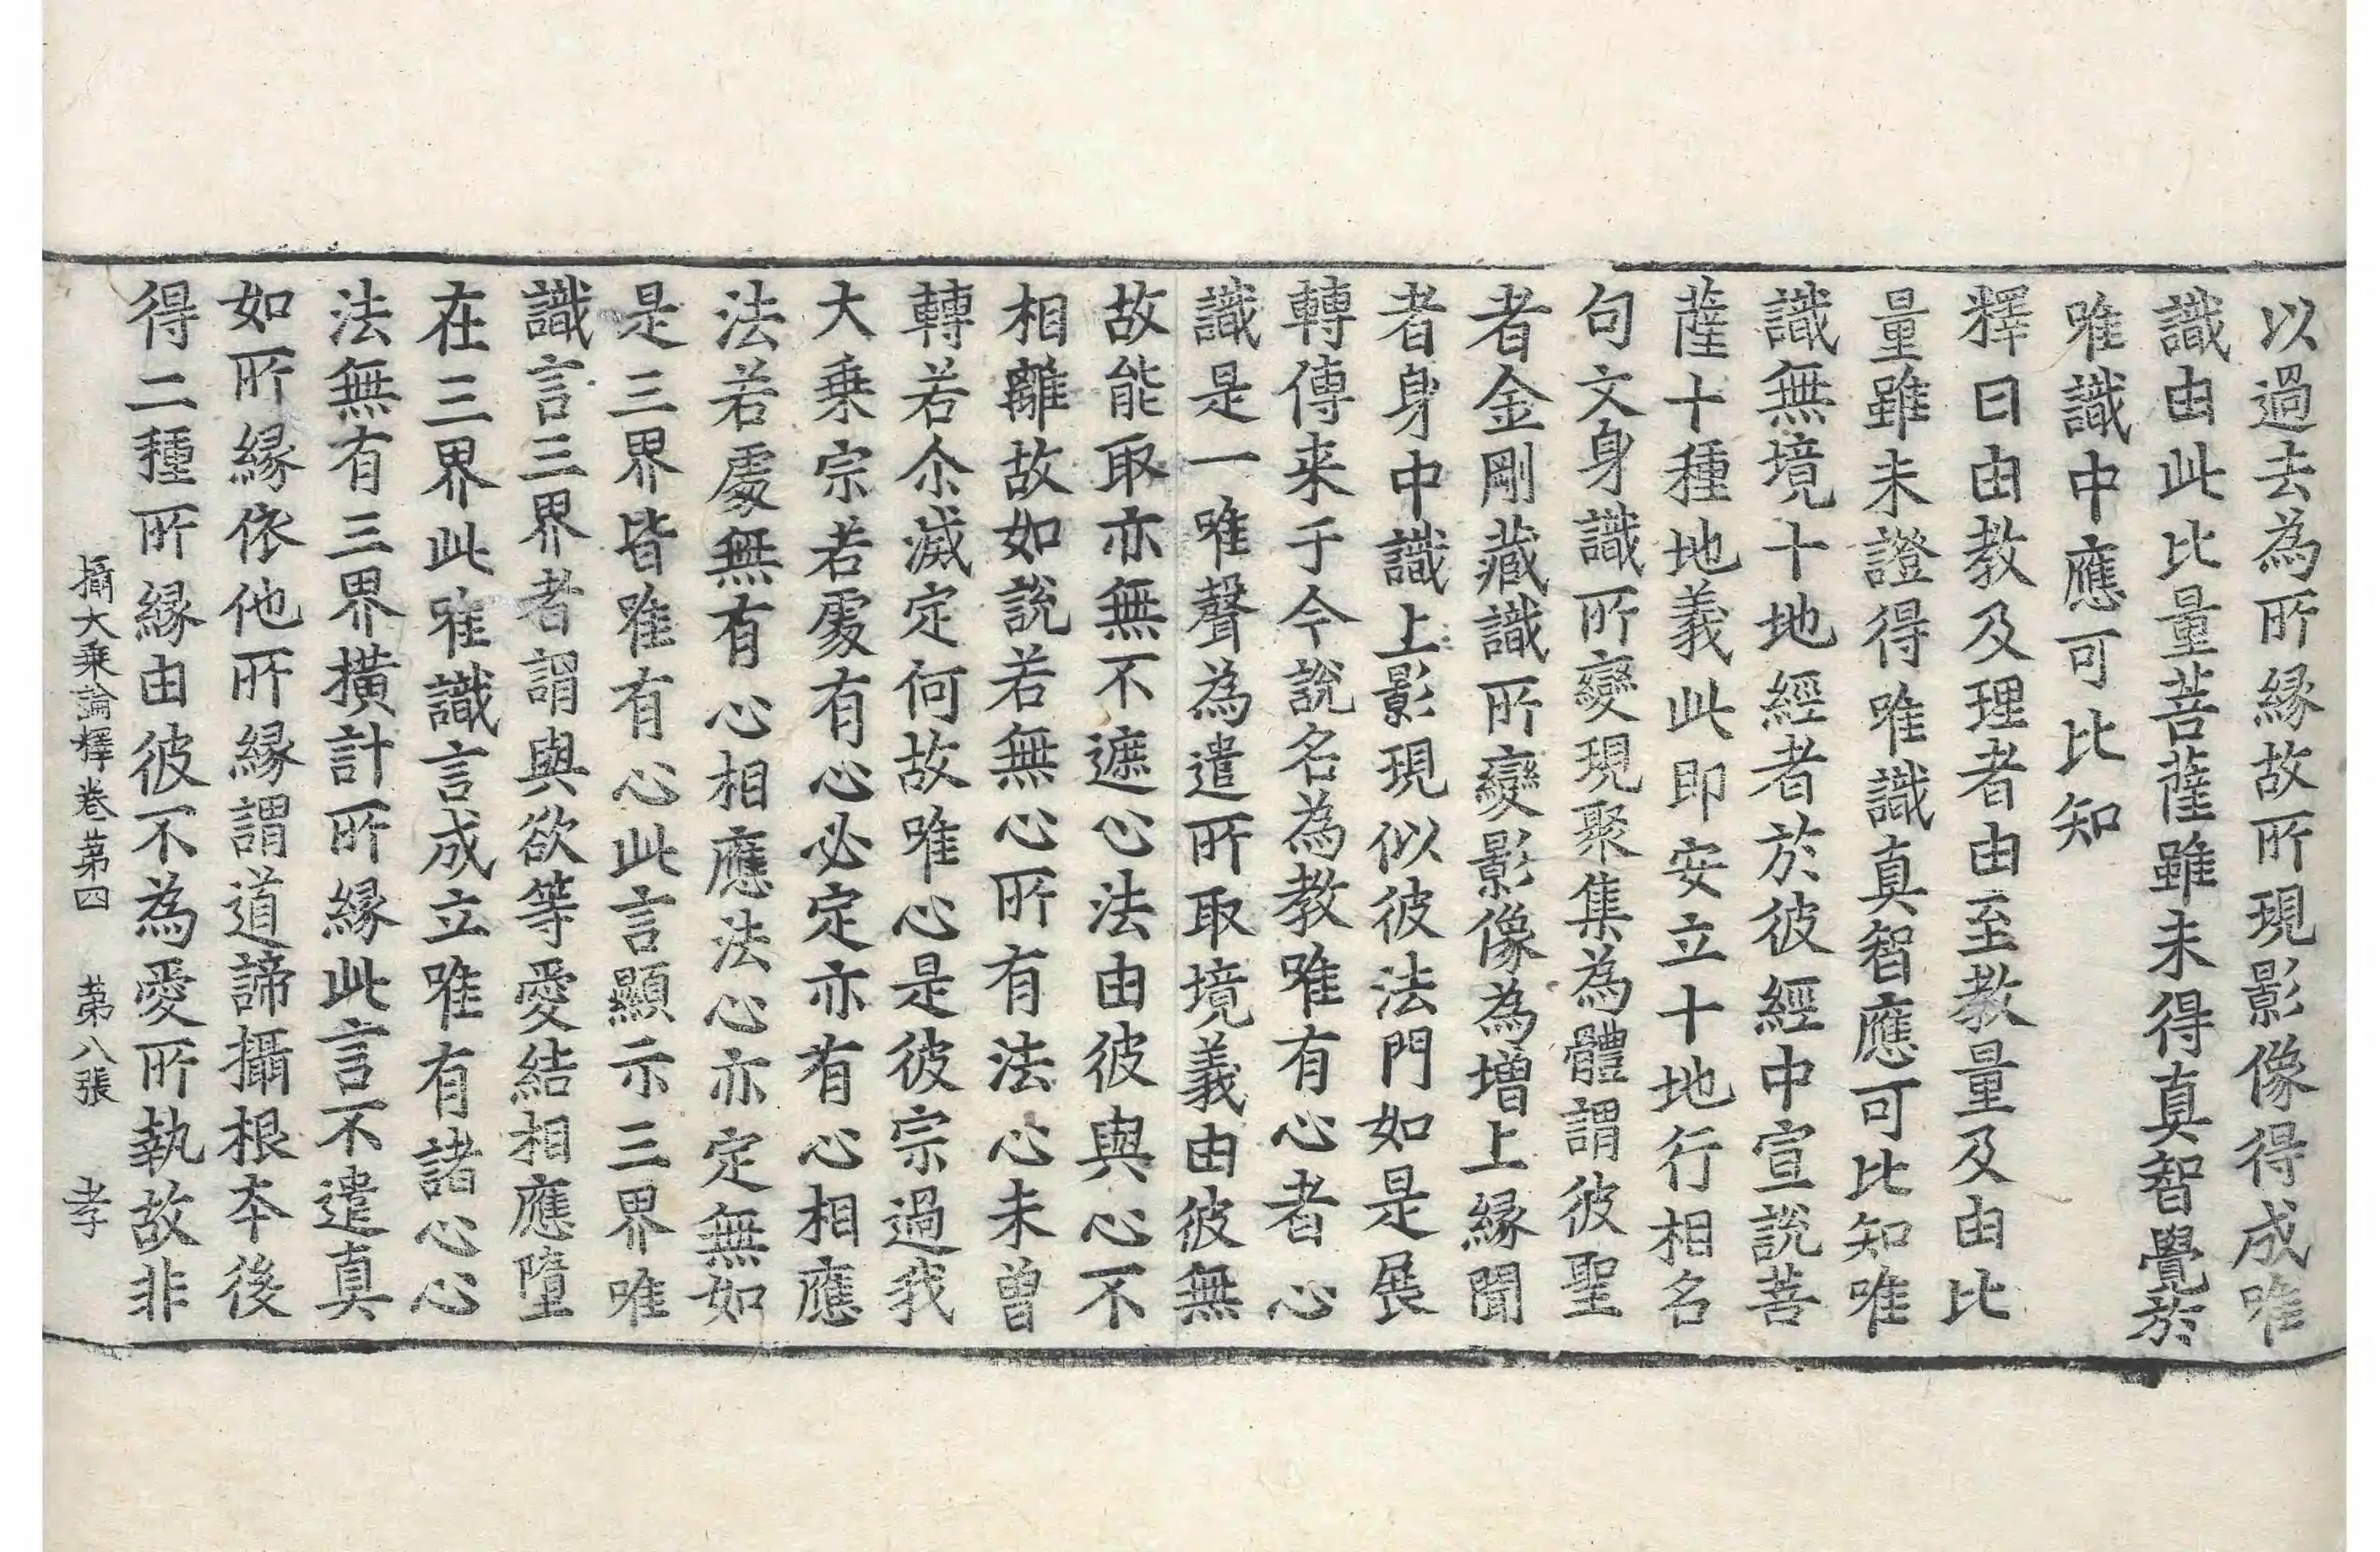 以過去為所縁故所現影像得成唯
識由此比量菩薩雖未得真智覺於
唯識中應可比知
釋曰由教及理者由至教量及由比
量雖未證得唯識真智應可比知唯
識無境十地經者於彼經中宣說菩
薩十種地義此即安立十地行相名
句文身識所變現聚集為體謂彼聖
者金剛藏識所變影像為增上縁聞
者身中識上影現似彼法門如是展
轉傳来于今說名為教唯有心者心
識是一唯聲為遣所取境義由彼無
故能取亦無不遮心法由彼與心不
相離故如說若無心所有法心未曽
轉若尒滅定何故唯心是彼宗過我
大乗宗若處有心必定亦有心相應
法若處無有心相應法心亦定無如
是三界皆唯有心此言顯示三界唯
識言三界者謂與欲等愛結相應墮
在三界此唯識言成立唯有諸心心
法無有三界撗計所縁此言不遣真
如所縁依他所縁謂道諦攝根本後
得二種所縁由彼不為愛所執故非
攝大乗論釋卷苐四　苐八張　孝